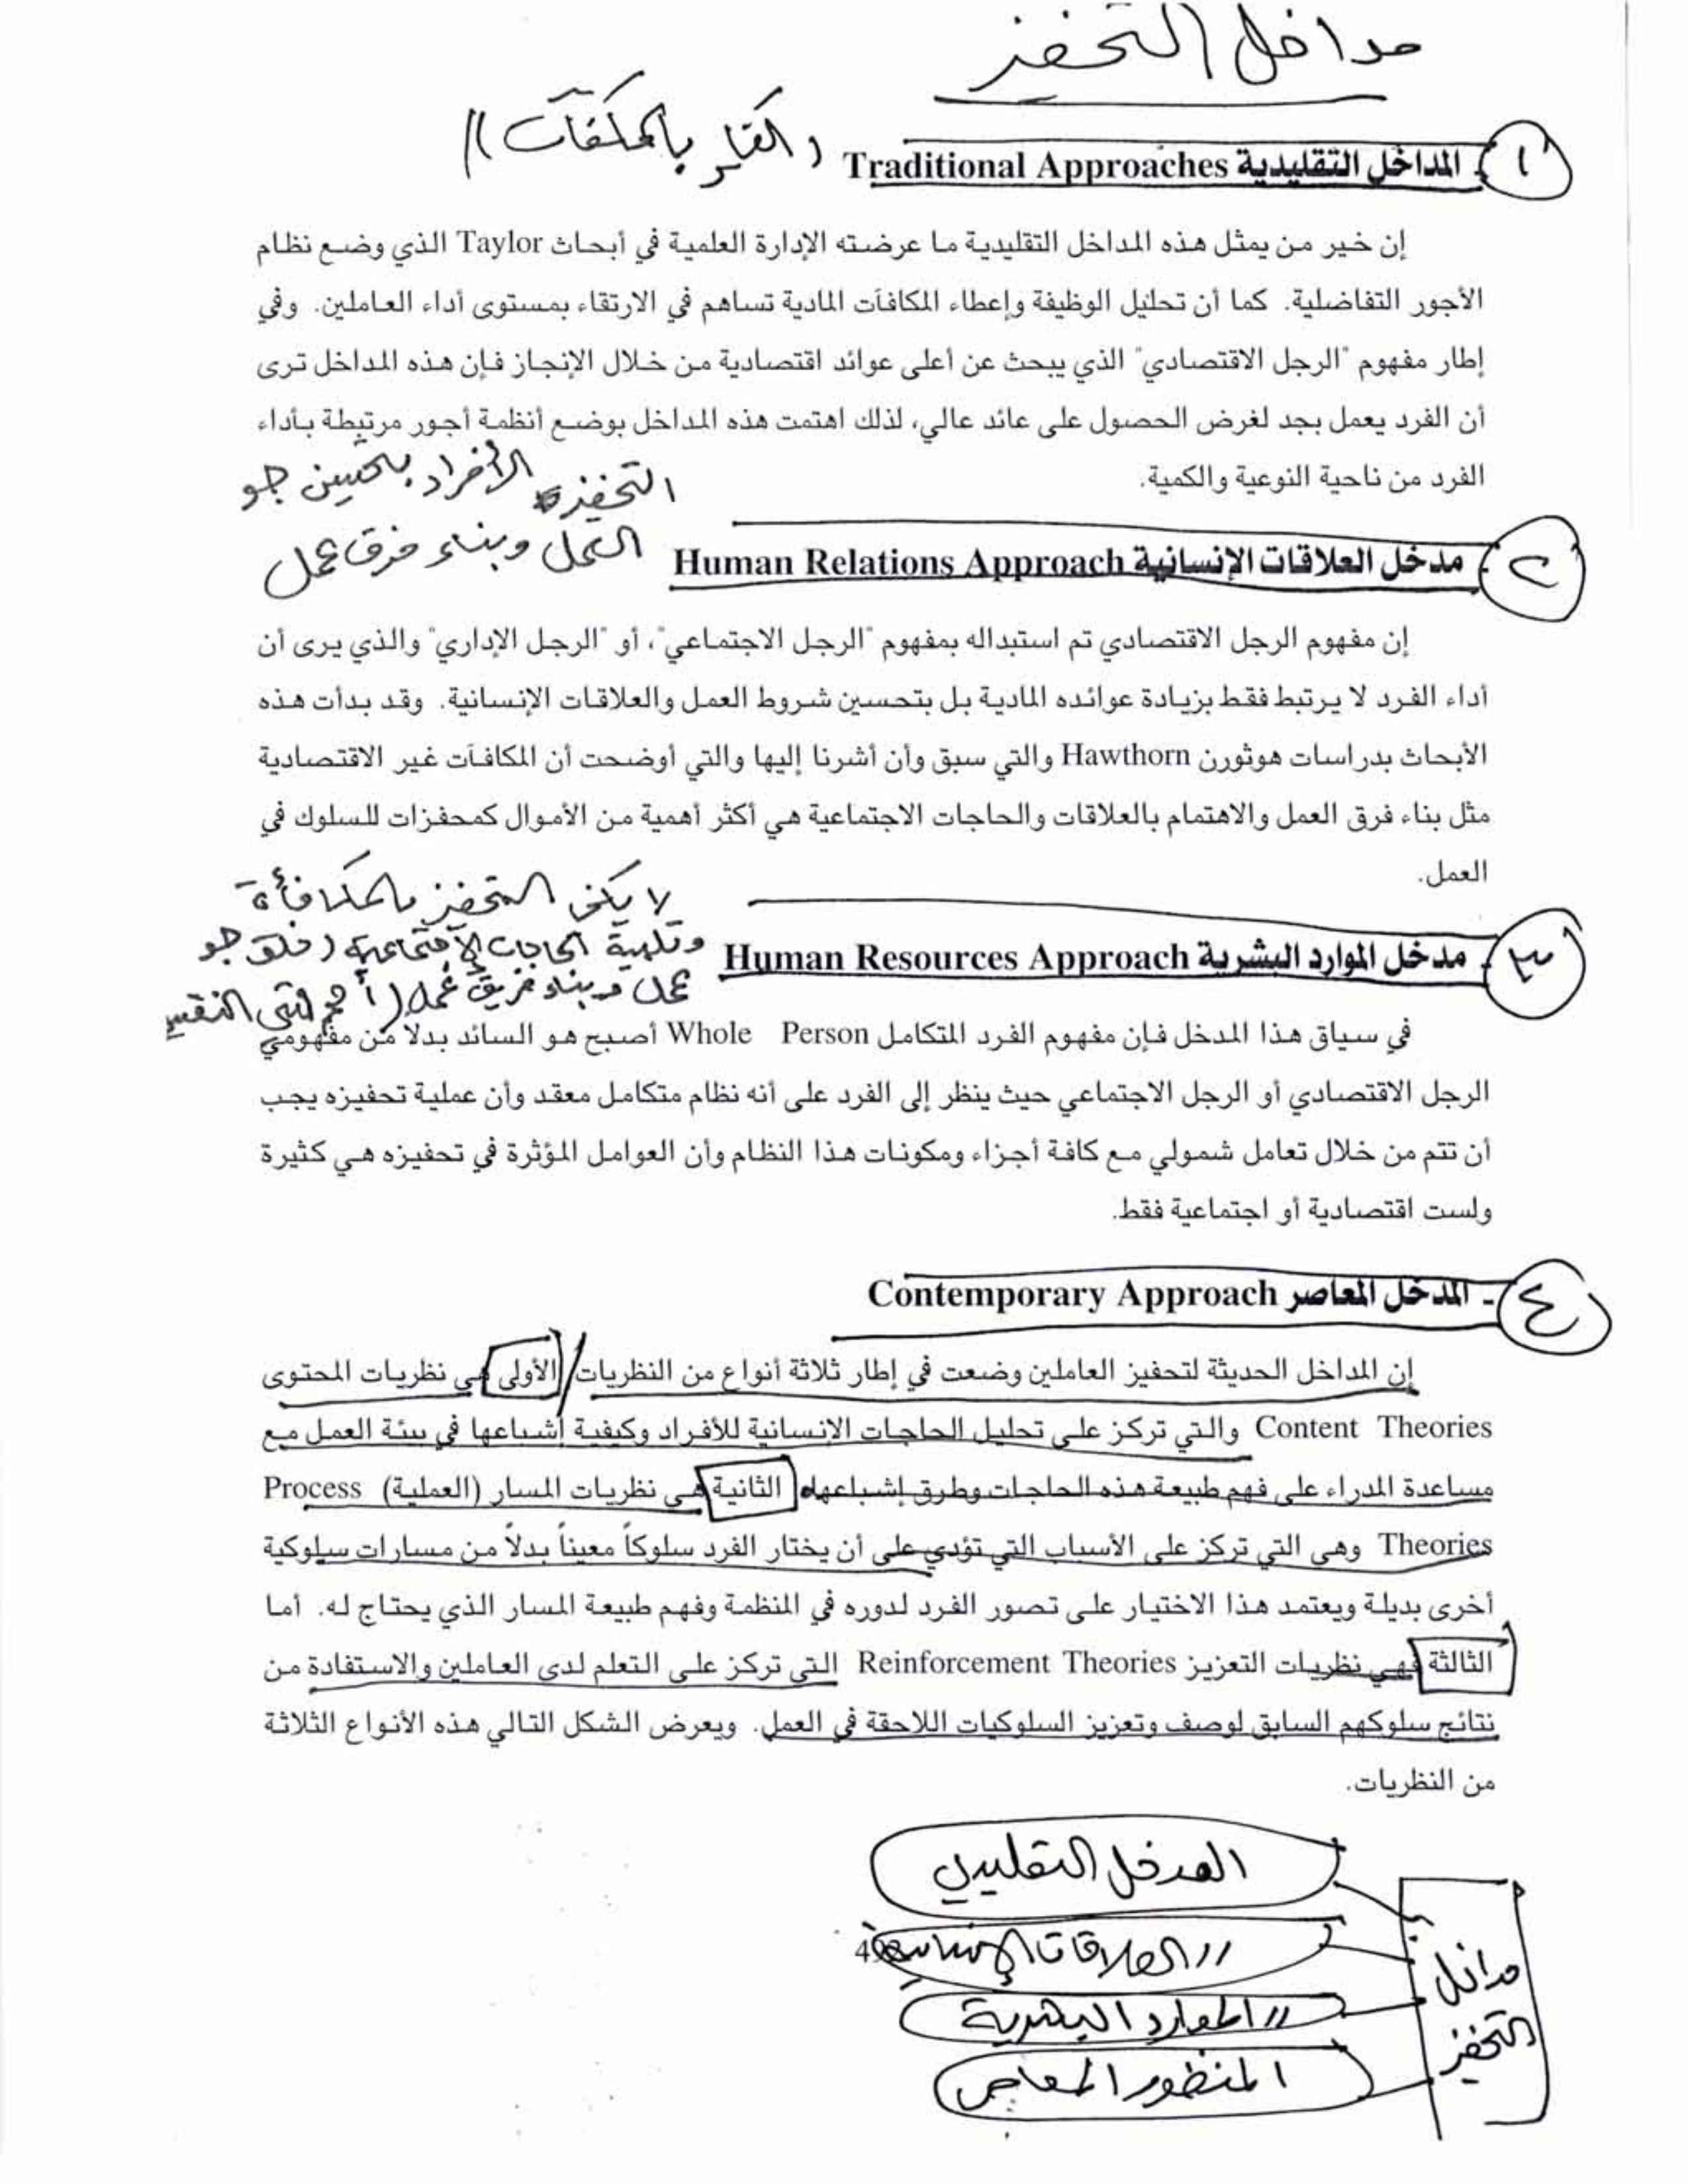 مداخل التحفيز
١ - المداخل التقليدية Traditional Approaches (التحفيز بالمكافآت)
إن خير من يمثل هذه المداخل التقليدية ما عرضته الإدارة العلمية في أبحاث Taylor الذي وضع نظام
الأجور التفاضلية. كما أن تحليل الوظيفة وإعطاء المكافآت المادية تساهم في الارتقاء بمستوى أداء العاملين. وفي
إطار مفهوم "الرجل الاقتصادي" الذي يبحث عن أعلى عوائد اقتصادية من خلال الإنجاز فإن هذه المداخل ترى
أن الفرد يعمل بجد لغرض الحصول على عائد عالي، لذلك اهتمت هذه المداخل بوضع أنظمة أجور مرتبطة بأداء
الفرد من ناحية النوعية والكمية.
التحفيز الأفراد بتحسين جو
العمل وبناء فرق عمل
٢ - مدخل العلاقات الإنسانية Human Relations Approach
إن مفهوم الرجل الاقتصادي تم استبداله بمفهوم "الرجل الاجتماعي"، أو "الرجل الإداري" والذي يرى أن
أداء الفرد لا يرتبط فقط بزيادة عوائده المادية بل بتحسين شروط العمل والعلاقات الإنسانية. وقد بدأت هذه
الأبحاث بدراسات هوثورن Hawthorn والتي سبق وأن أشرنا إليها والتي أوضحت أن المكافآت غير الاقتصادية
مثل بناء فرق العمل والاهتمام بالعلاقات والحاجات الاجتماعية هي أكثر أهمية من الأموال كمحفزات للسلوك في
العمل.
لا يكفي التحفيز بالمكافأة
وتلبية الحاجات الإجتماعية (خلق جو
عمل وبناء فريق عمل)
٣ - مدخل الموارد البشرية Human Resources Approach
في سياق هذا المدخل فإن مفهوم الفرد المتكامل Whole Person أصبح هو السائد بدلاً من مفهومي
الرجل الاقتصادي أو الرجل الاجتماعي حيث ينظر إلى الفرد على أنه نظام متكامل معقد وأن عملية تحفيزه يجب
أن تتم من خلال تعامل شمولي مع كافة أجزاء ومكونات هذا النظام وأن العوامل المؤثرة في تحفيزه هي كثيرة
ولست اقتصادية أو اجتماعية فقط.
٤ - المدخل المعاصر Contemporary Approach
إن المداخل الحديثة لتحفيز العاملين وضعت في إطار ثلاثة أنواع من النظريات/ الأولى هي نظريات المحتوى
Content Theories والتي تركز على تحليل الحاجات الإنسانية للأفراد وكيفية إشباعها في بيئة العمل مع
مساعدة المدراء على فهم طبيعة هذه الحاجات وطرق إشباعها، الثانية هي نظريات المسار (العملية) Process
Theories وهي التي تركز على الأسباب التي تؤدي على أن يختار الفرد سلوكاً معيناً بدلاً من مسارات سلوكية
أخرى بديلة ويعتمد هذا الاختيار على تصور الفرد لدوره في المنظمة وفهم طبيعة المسار الذي يحتاج له. أما
الثالثة فهي نظريات التعزيز Reinforcement Theories التي تركز على التعلم لدى العاملين والاستفادة من
نتائج سلوكهم السابق لوصف وتعزيز السلوكيات اللاحقة في العمل. ويعرض الشكل التالي هذه الأنواع الثلاثة
من النظريات.
مداخل التحفيز
المدخل التقليدي
// العلاقات الإنسانية
// الموارد البشرية
المنظور المعاصر